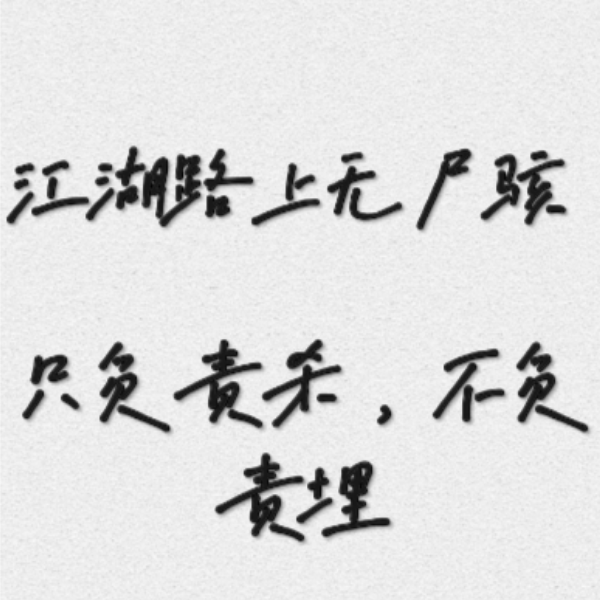 江湖路上无尸骇
只负责杀，不负
责埋